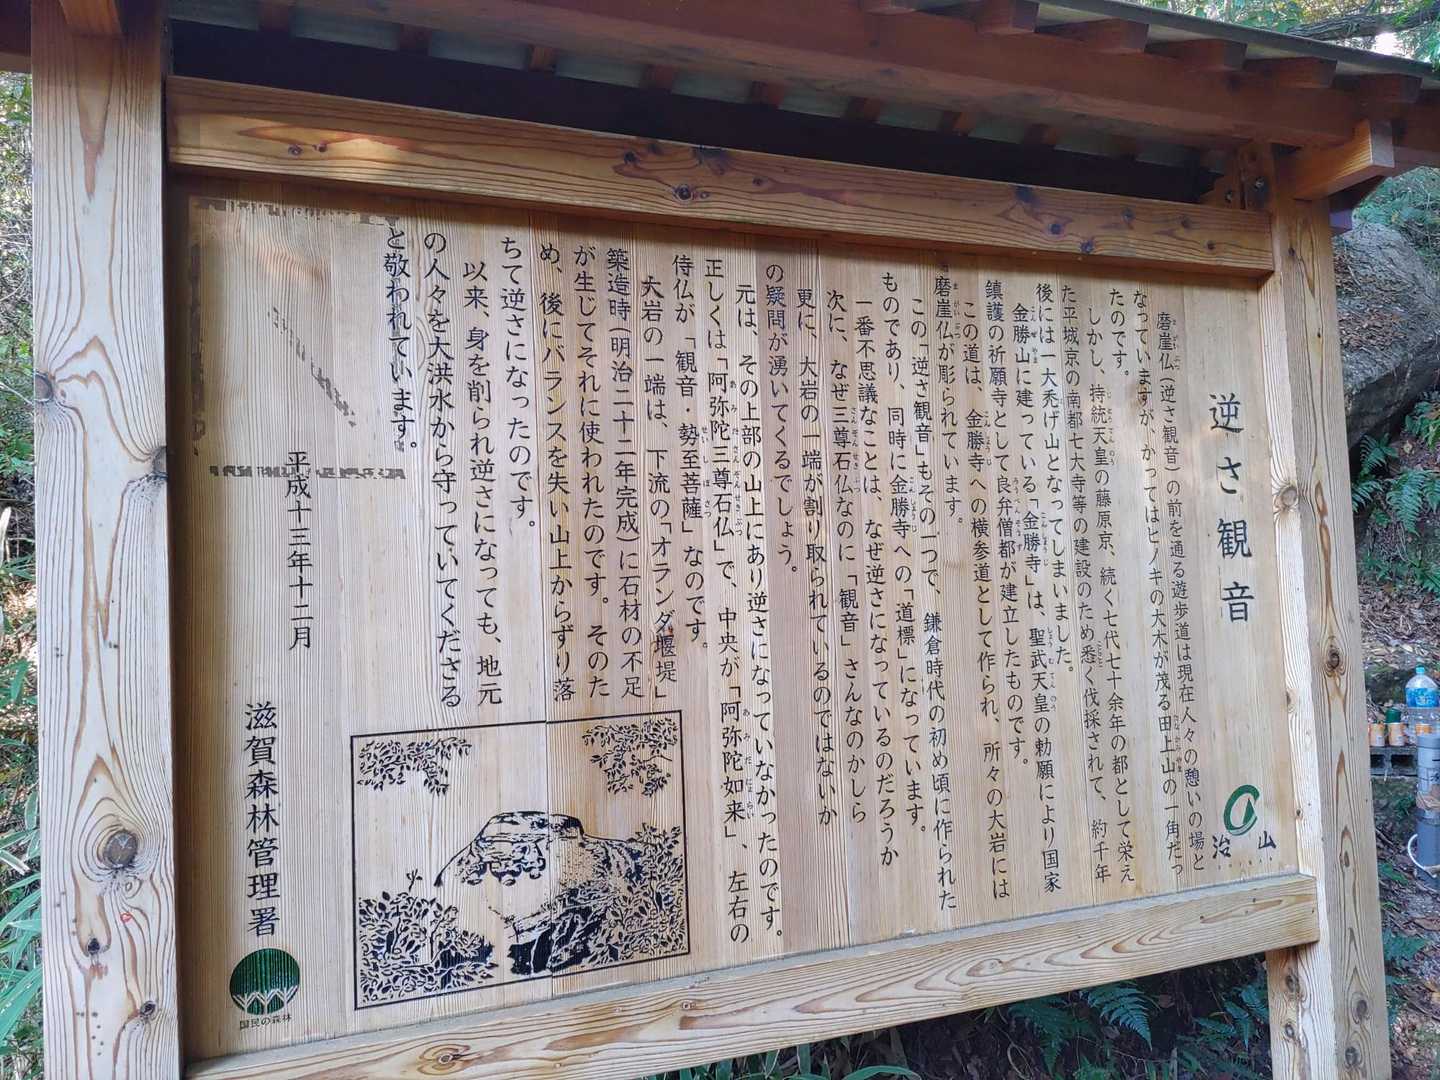 逆さ観音
磨崖仏(逆さ観音)の前を通る遊歩道は現在人々の憩いの場と
なっていますが、かつてはヒノキの大木が茂る田上山の一角だっ
たのです。
しかし、持統天皇の藤原京、続く七代七十余年の都として栄え
た平城京の南都七大寺等の建設のため悉く伐採されて、約千年
後には一大禿げ山となってしまいました。
金勝山に建っている「金勝寺」は、聖武天皇の勅願により国家
鎮護の祈願寺として良弁僧都が建立したものです。
この道は、金勝寺への横参道として作られ、所々の大岩には
磨崖仏が彫られています。
この「逆さ観音」もその一つで、鎌倉時代の初め頃に作られた
ものであり、同時に金勝寺への「道標」になっています。
一番不思議なことは、なぜ逆さになっているのだろうか
次に、なぜ三尊石仏なのに「観音」さんなのかしら
更に、大岩の一端が割り取られているのではないか
の疑問が湧いてくるでしょう。
元は、その上部の山上にあり逆さになっていなかったのです。
正しくは「阿弥陀三尊石仏」で、中央が「阿弥陀如来」、左右の
侍仏が「観音・勢至菩薩」なのです。
大岩の一端は、下流の「オランダ堰堤」
築造時(明治二十二年完成)に石材の不足
が生じてそれに使われたのです。そのた
め、後にバランスを失い山上からずり落
ちて逆さになったのです。
以来、身を削られ逆さになっても、地元
の人々を大洪水から守っていてくださる
と敬われています。
平成十三年十二月
滋賀森林管理署
国民の森林
治山